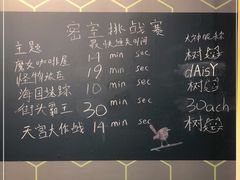 密室挑战赛
主题 最快通关时间 大神候选
魔女咖啡屋 14 min sec 树懿
怪物旅店 19 min sec dAisY
海国迷踪 10 min sec 树懿
街头霸王 30 min sec 30ach
天宫大作战 14 min sec 树懿